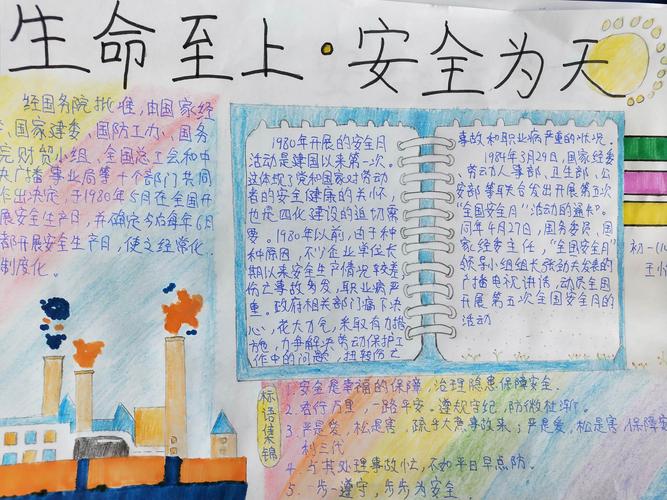 生命至上·安全为天
经国务院批准,由国家经
委、国家建委、国防工办、国务
院财贸小组、全国总工会和中
央广播事业局等十个部门共同
作出决定,于1980年5月在全国开
展安全生产日,并确定今后每年6月
都开展安全生产日,使之经常化、
制度化。
1980年开展的安全月
活动是建国以来第一次。
这体现了党和国家对劳动
者的安全健康的关怀,
也是四化建设的迫切需
要。1980年以前,由于种
种原因,不少企业单位长
期以来安全生产情况较差
伤亡事故多发,职业病严
重。政府相关部门痛下决
心,花大力气,采取有力措
施,力争解决劳动保护工
作中的问题,扭转伤亡
事故和职业病严重的状况。
1984年3月29日,国家经委
劳动人事部、卫生部、公
安部等联合发出开展第五次
"全国安全月"活动的通知。
同年4月27日,国务委员、国
家经委主任,"全国安全月"
领导小组组长张劲夫发表的
广播电视讲话,动员全国
开展第五次全国安全月的
活动
初一
王
标语集锦
1.安全是幸福的保障,治理隐患保障安全
2.春行万里,一路平安。遵规守纪,防微杜渐。
3.严是爱,松是害,疏乎大意事故来;严是爱,松是害,保障安
利三代
4.与其处理事故忙,不如平日早点防。
5.一步一遵守,步步为安全